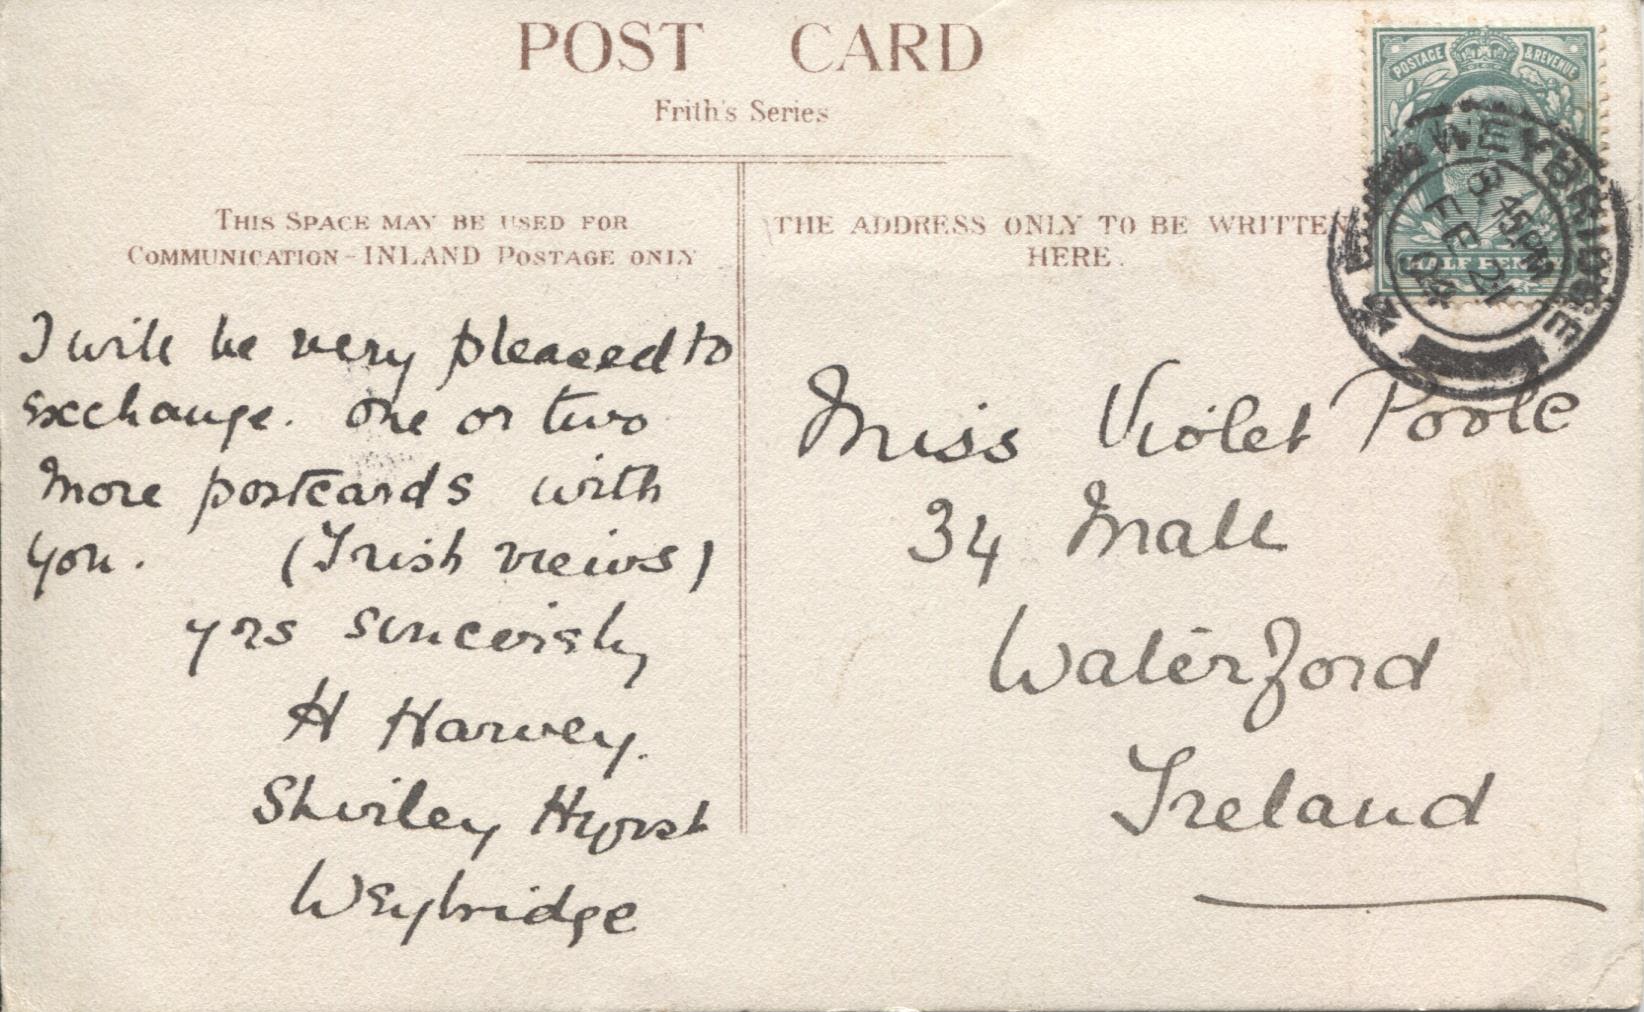 POST CARD
Frith's Series
THIS SPACE MAY BE USED FOR
COMMUNICATION - INLAND POSTAGE ONLY
I will be very pleased to
exchange. one or two
more postcards with
you. (Irish views)
yrs sincerely
H Harvey.
Shirley Hyrst
Weybridge
THE ADDRESS ONLY TO BE WRITTEN
HERE.
POSTAGE & REVENUE
HALF PENNY
WEYBRIDGE
8.45PM
FE 21
04
Miss Violet Poole
34 Mall
Waterford
Ireland